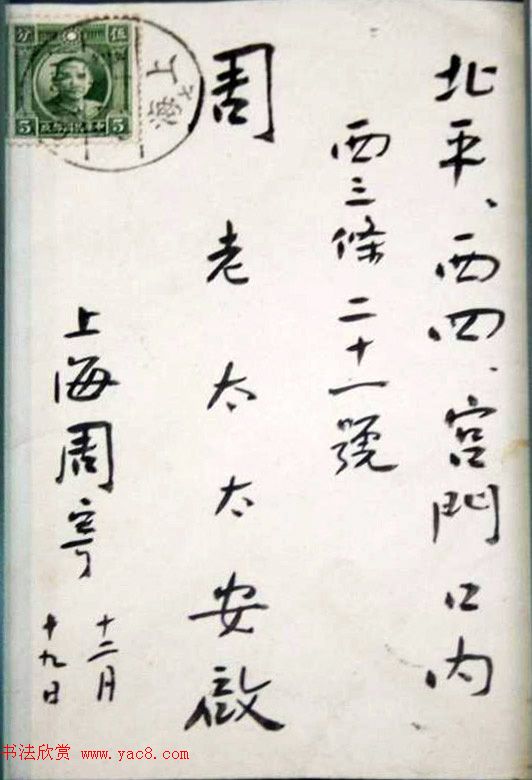 北平、西四、宮門口内
西三條二十一號
周老太太安啟
上海周寄
十二月
十九日
上海
伍 分
5 5
书法欣赏 www.yac8.com